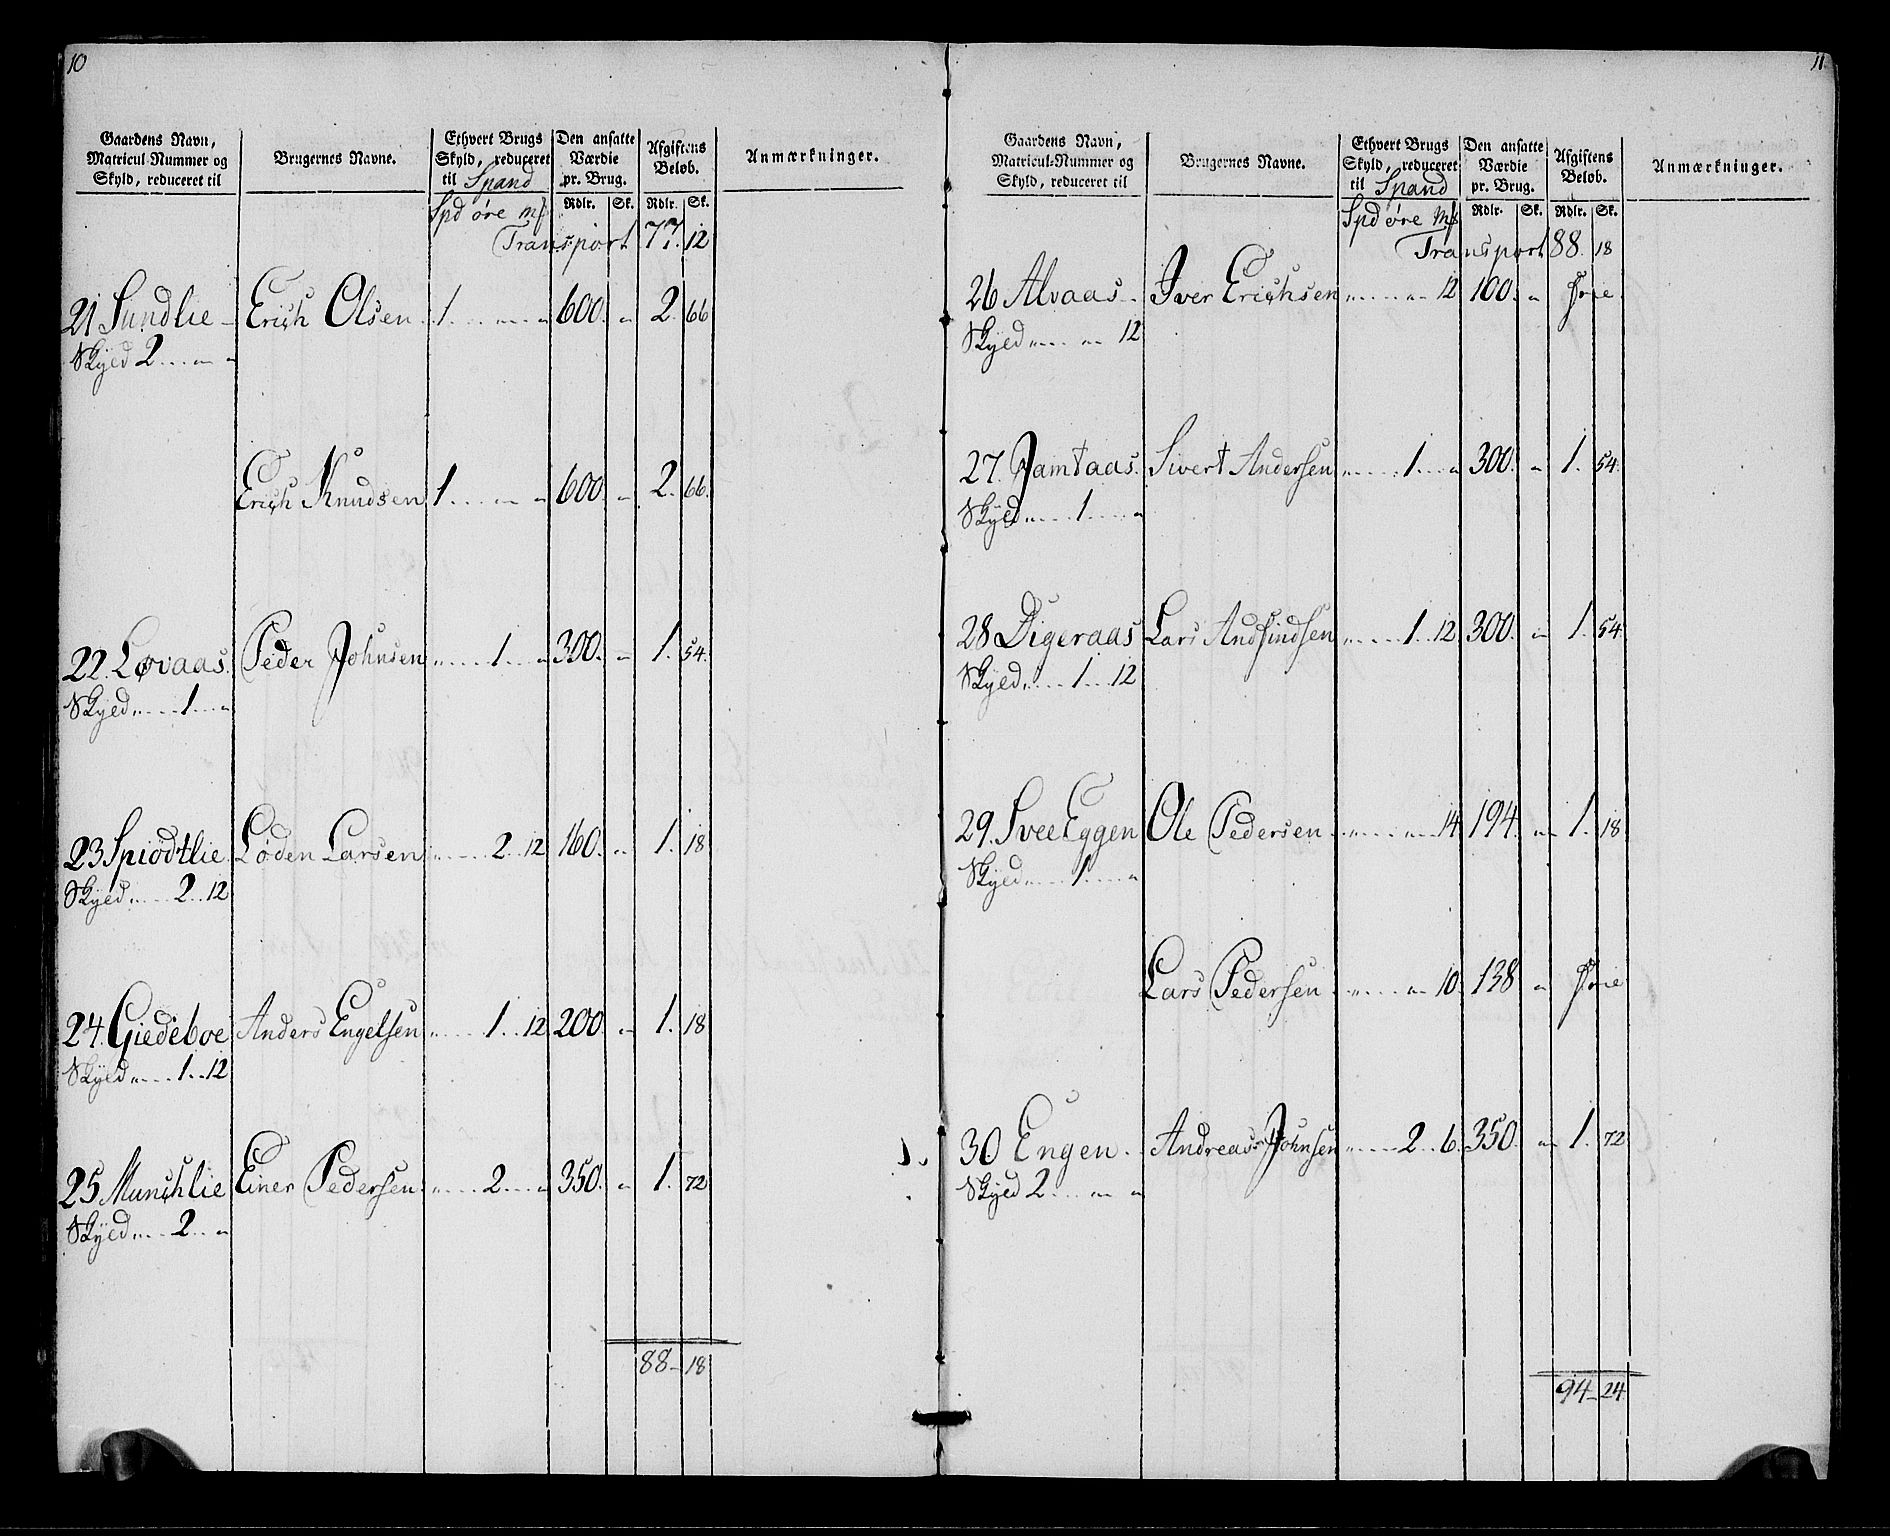 10
Gaardens Navn, Matricul-Nummer og Skyld, reduceret til
Brugernes Navne.
Ethvert Brugs Skyld, reduceret til Spand
Den ansatte Værdie pr. Brug.
Afgiftens Beløb.
Anmærkninger.
Spd øre mſ Rdlr. Sk. Rdlr. Sk.
Transport 77. 12
21 Sundlie Erich Olsen 1 . . . „ . . „ 600. „ 2. 66
Skyed 2 . . . „ . . „
Erich Knudsen 1 . . . „ . . „ 600. „ 2. 66.
22. Løvaas. Peder Johnsen „ . . . 1 . . „ 300. „ 1. 54.
Skyed „ . . . 1 . . „
23 Spiødtlie Løden Larsen „ . . . 2 . . 12 160. „ 1. 18
Skyed „ . . . 2 . . 12
24. Giedeboe Anders Engelsen „ . . . 1 . . 12 200. „ 1. 18
Skyed „ . . . 1 . . 12
25 Munchlie Einer Pedersen „ . . . 2 . . „ 350. „ 1. 72
Skyed „ . . . 2 . . „
88 – 18
11.
Gaardens Navn, Matricul-Nummer og Skyld, reduceret til
Brugernes Navne.
Ethvert Brugs Skyld, reduceret til Spand
Den ansatte Værdie pr. Brug.
Afgiftens Beløb.
Anmærkninger.
Spd øre mſ Rdlr. Sk. Rdlr. Sk.
Transport 88. 18
26 Alvaas Iver Erichsen „ . . . „ . . 12 100. „ frie.
Skyed „ . . . „ . . 12
27. Jamtaas. Sivert Andersen „ . . . 1 . . „ 300. „ 1. 54.
Skyed „ . . . 1 . . „
28 Digeraas Lars Amundsen „ . . . 1 . . 12 300. „ 1. 54
Skyed „ . . . 1 . . 12
29. SveeEggen Ole Pedersen „ . . . „ . . 14 194. „ 1. 18
Skyed „ . . . 1 . . „
Lars Pedersen „ . . . „ . . 10. 138 „ frie
30 Engen. Andreas Johnsen „ . . . 2 . . 6. 350. „ 1. 72
Skyed 2 . . . „ . . „
94 – 24